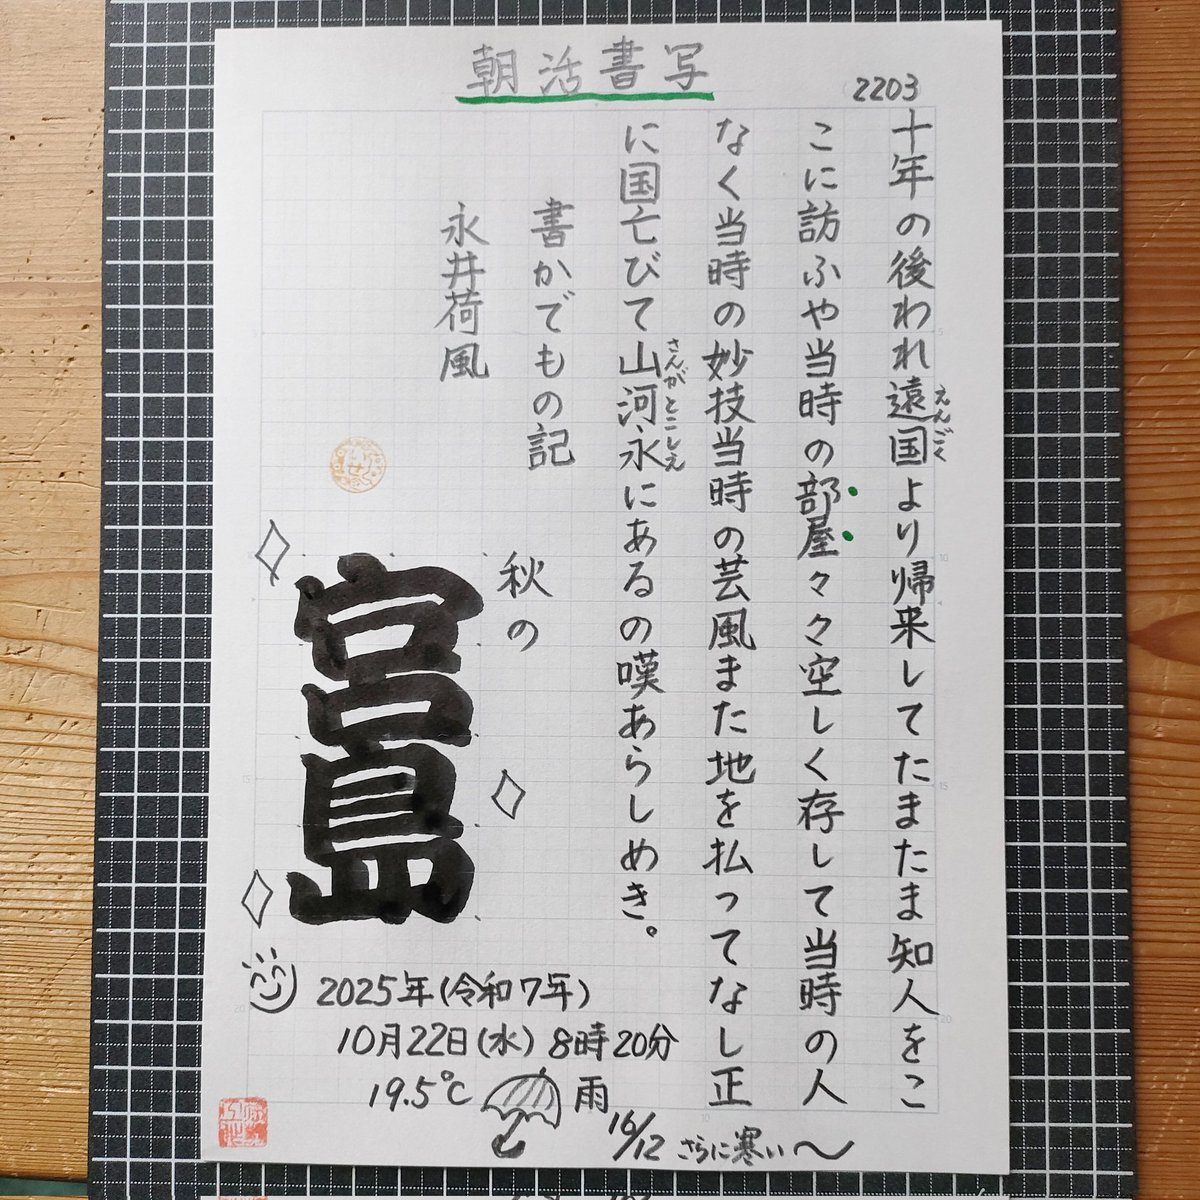 朝活書写
2203
十年の後われ遠国より帰来してたまたま知人をこ
えんごく
こに訪ふや当時の部屋々々空しく存して当時の人
なく当時の妙技当時の芸風また地を払ってなし正
に国亡びて山河永にあるの嘆あらしめき。
さんがとこしえ
書かでもの記
永井荷風
秋の
宮島
2025年(令和7年)
10月22日(水) 8時20分
19.5℃ 雨
16/12 さらに寒い〜